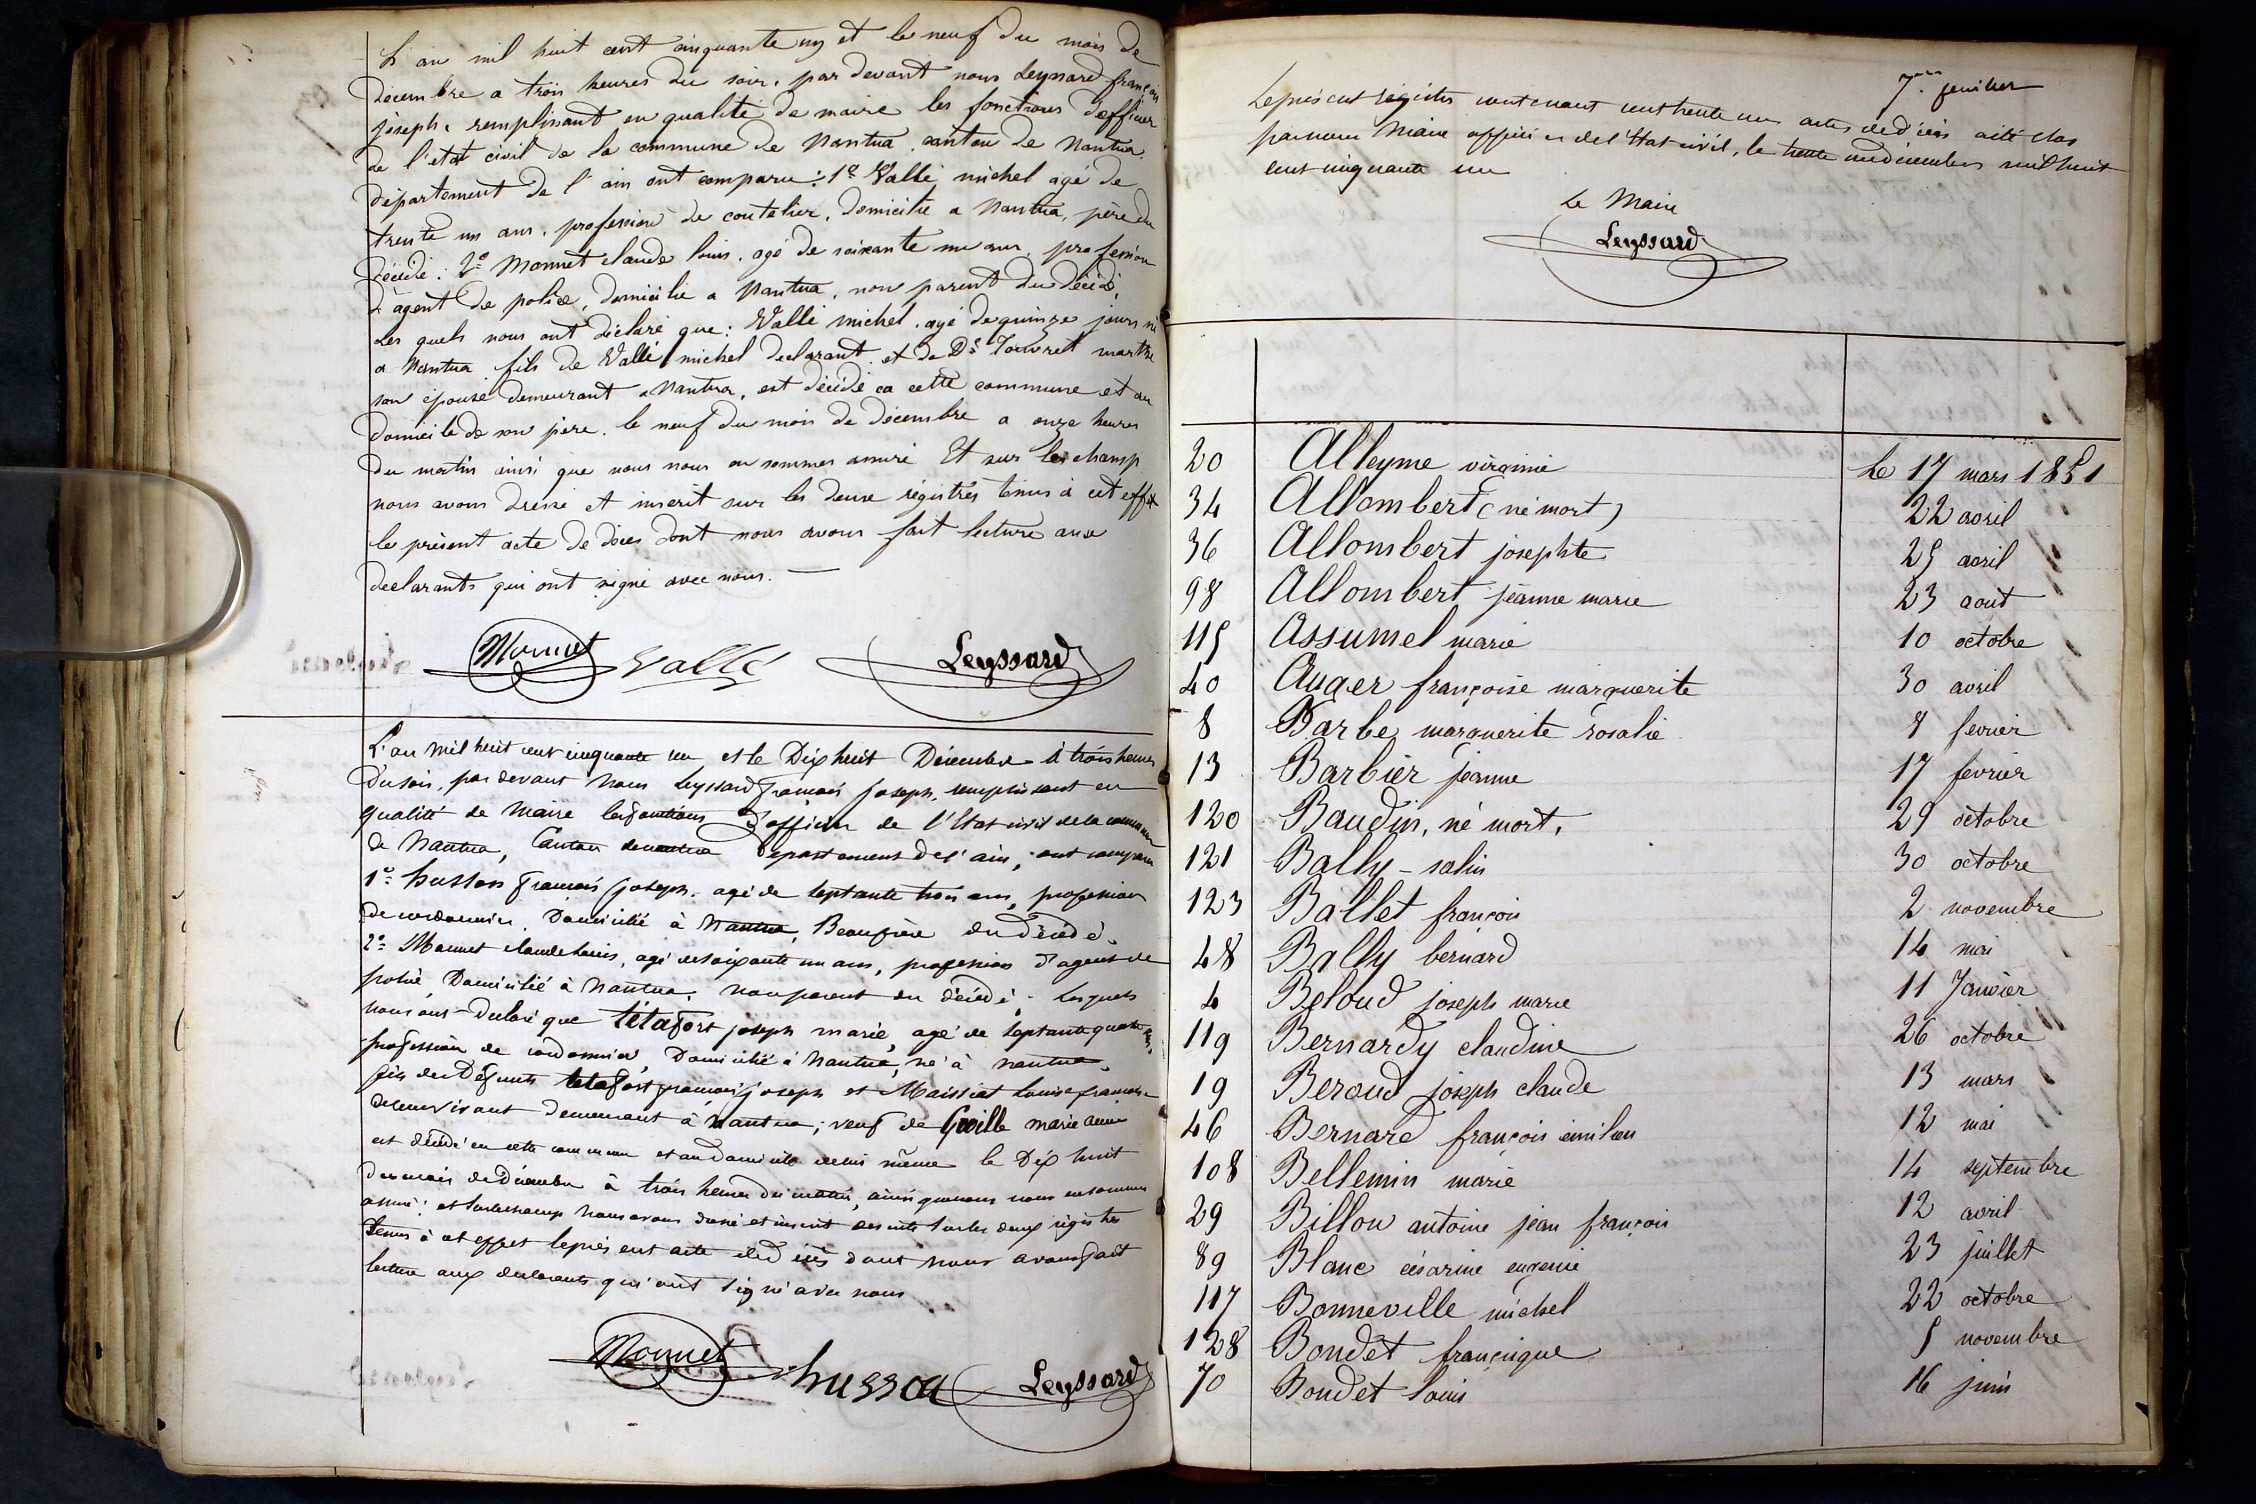 L'an mil huit cent cinquante un et le neuf du mois de
decembre a trois heures du soir, par devant nous Leyssard françois
joseph, remplissant en qualité de maire les fonctions d'officier
de l'etat civil de la commune de Nantua, canton de Nantua
département de l'ain ont comparu: 1º Vallé michel agé de
trente un ans, profession de coutelier, domicilié a Nantua, père du
décédé: 2º Monnet claude louis, agé de soixante un ans, profession
d'agent de police, domicilié a Nantua, non parent du décédé,
Les quels nous ont déclaré que: Vallé michel, agé de quinze jours né
a Nantua fils de Vallé michel declarant et de De marthe
son épouse demeurant a Nantua, est décédé en cette commune et au
domicile de son père, le neuf du mois de décembre a onze heures
du matin ainsi que nous nous en sommes assuré Et sur le champ
nous avons dressé et inscrit sur les deux régistres tenus à cet effet
le présent acte de décès dont nous avons fait lecture aux
declarants qui ont signé avec nous.
Monnet Vallé Leyssard
L'an mil huit cent cinquante un et le Dix huit Décembre à trois heures
du soir, par devant Nous Leyssard françois joseph, remplissant en
qualité de Maire les fonctions d'officier de l'Etat civil de la commune
de Nantua, Canton de nantua département de l'ain, ont comparu
1º husson françois joseph, agé de septante trois ans, profession
de cordonnier, Domicilié à Nantua, Beaufrère du décédé.
2º Monnet claude Louis, agé de soixante un ans, profession d'agent de
police Domicilié à Nantua, non parent du décédé. Lesquels
nous ont déclaré que tétafort joseph marie, agé de septante quatre ans,
profession de cordonnier, Domicilié à Nantua, né à nantua,
fils des Défunts tetafort françois joseph et Maissiat Louise françoise
de leur vivant demeurant à Nantua; veuf de marie
est décédé en cette commune et au domicile de lui même le Dix huit
du mois de Décembre à trois heures du matin, ainsi que nous nous en sommes
assuré: et sur le champ Nous avons dressé et inscrit de suite sur les deux régistres
tenus à cet effet le présent acte de décès dont nous avons fait
lecture aux declarants qui ont signé avec nous
Monnet husson Leyssard
7.me feuillet
Le présent régistre contenant cent trente un actes de décès a été clos
par nous Maire officier de l'Etat civil, le trente un décembre mil huit
cent cinquante un
Le Maire
Leyssard
20 Alleyme virginie Le 17 mars 1851
34 Allombert (né mort) 22 avril
36 Allombert josephte 25 avril
98 Allombert jeanne marie 23 aout
115 Assumel marie 10 octobre
40 Auger françoise marguerite 30 avril
8 Barbe marguerite rosalie 8 fevrier
13 Barbier jeanne 17 fevrier
120 Baudin, né mort. 29 octobre
121 Bally - salin 30 octobre
123 Ballet françois 2 novembre
48 Bally bernard 14 mai
4 Beloud joseph marie 11 Janvier
119 Bernardy claudine 26 octobre
19 Beroud joseph claude 13 mars
46 Bernard françois émilien 12 mai
108 Bellemin marie 14 septembre
29 Billon antoine jean françois 12 avril
89 Blanc césarine eugenie 23 juillet
117 Bonneville michel 22 octobre
128 Bondet françique 5 novembre
70 Bondet louis 16 juin